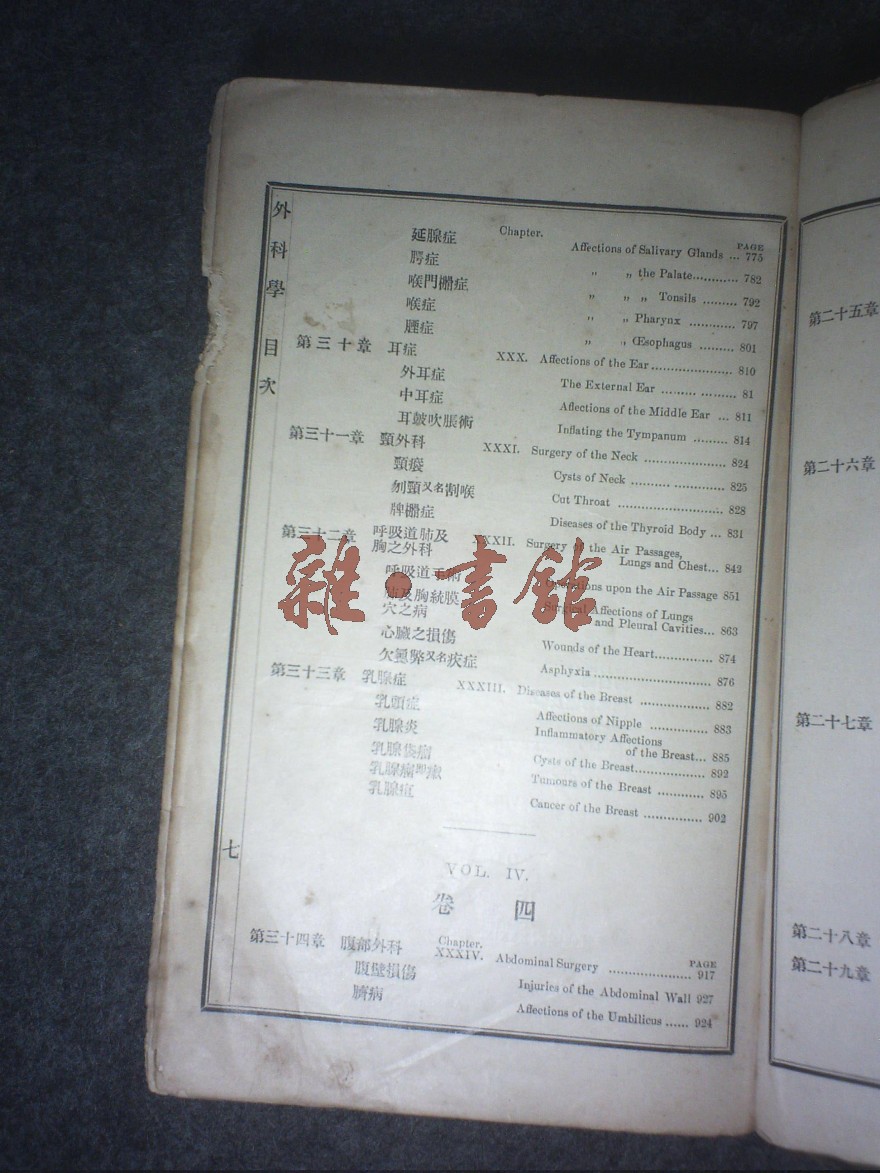 外科學 目次
Chapter. PAGE
延腺症 Affections of Salivary Glands ... 775
腭症 " " the Palate............ 782
喉門棚症 " " " Tonsils ......... 792
喉症 " " Pharynx ............ 797
症 " " Œsophagus ......... 801
第三十章 耳症 XXX. Affections of the Ear..................... 810
外耳症 The External Ear ................... 81
中耳症 Affections of the Middle Ear ... 811
耳皷吹脹術 Inflating the Tympanum ......... 814
第三十一章 頸外科 XXXI. Surgery of the Neck ..................... 824
頸 Cysts of Neck ........................ 825
刎頸又名割喉 Cut Throat ........................ 828
症 Diseases of the Thyroid Body ... 831
第三十二章 呼吸道肺及
胸之外科 XXXII. Surgery the Air Passages,
Lungs and Chest... 842
呼吸道手術 upon the Air Passage 851
肺及胸統膜
穴之病 Surgical Affections of Lungs
and Pleural Cavities... 863
心臟之損傷 Wounds of the Heart............... 874
又名疾症 Asphyxia .............................. 876
第三十三章 乳腺症 XXXIII. Diseases of the Breast .................. 882
乳頭症 Affections of Nipple ............... 883
乳腺炎 Inflammatory Affections
of the Breast... 885
乳腺 Cysts of the Breast.................. 892
乳腺 Tumours of the Breast ............ 895
乳腺 Cancer of the Breast ............... 902
七
VOL. IV.
卷 四
Chapter. PAGE
第三十四章 腹部外科 XXXIV. Abdominal Surgery ..................... 917
腹壁損傷 Injuries of the Abdominal Wall 927
臍病 Affections of the Umbilicus ...... 924
第二十五章
第二十六章
第二十七章
第二十八章
第二十九章
雜·書館